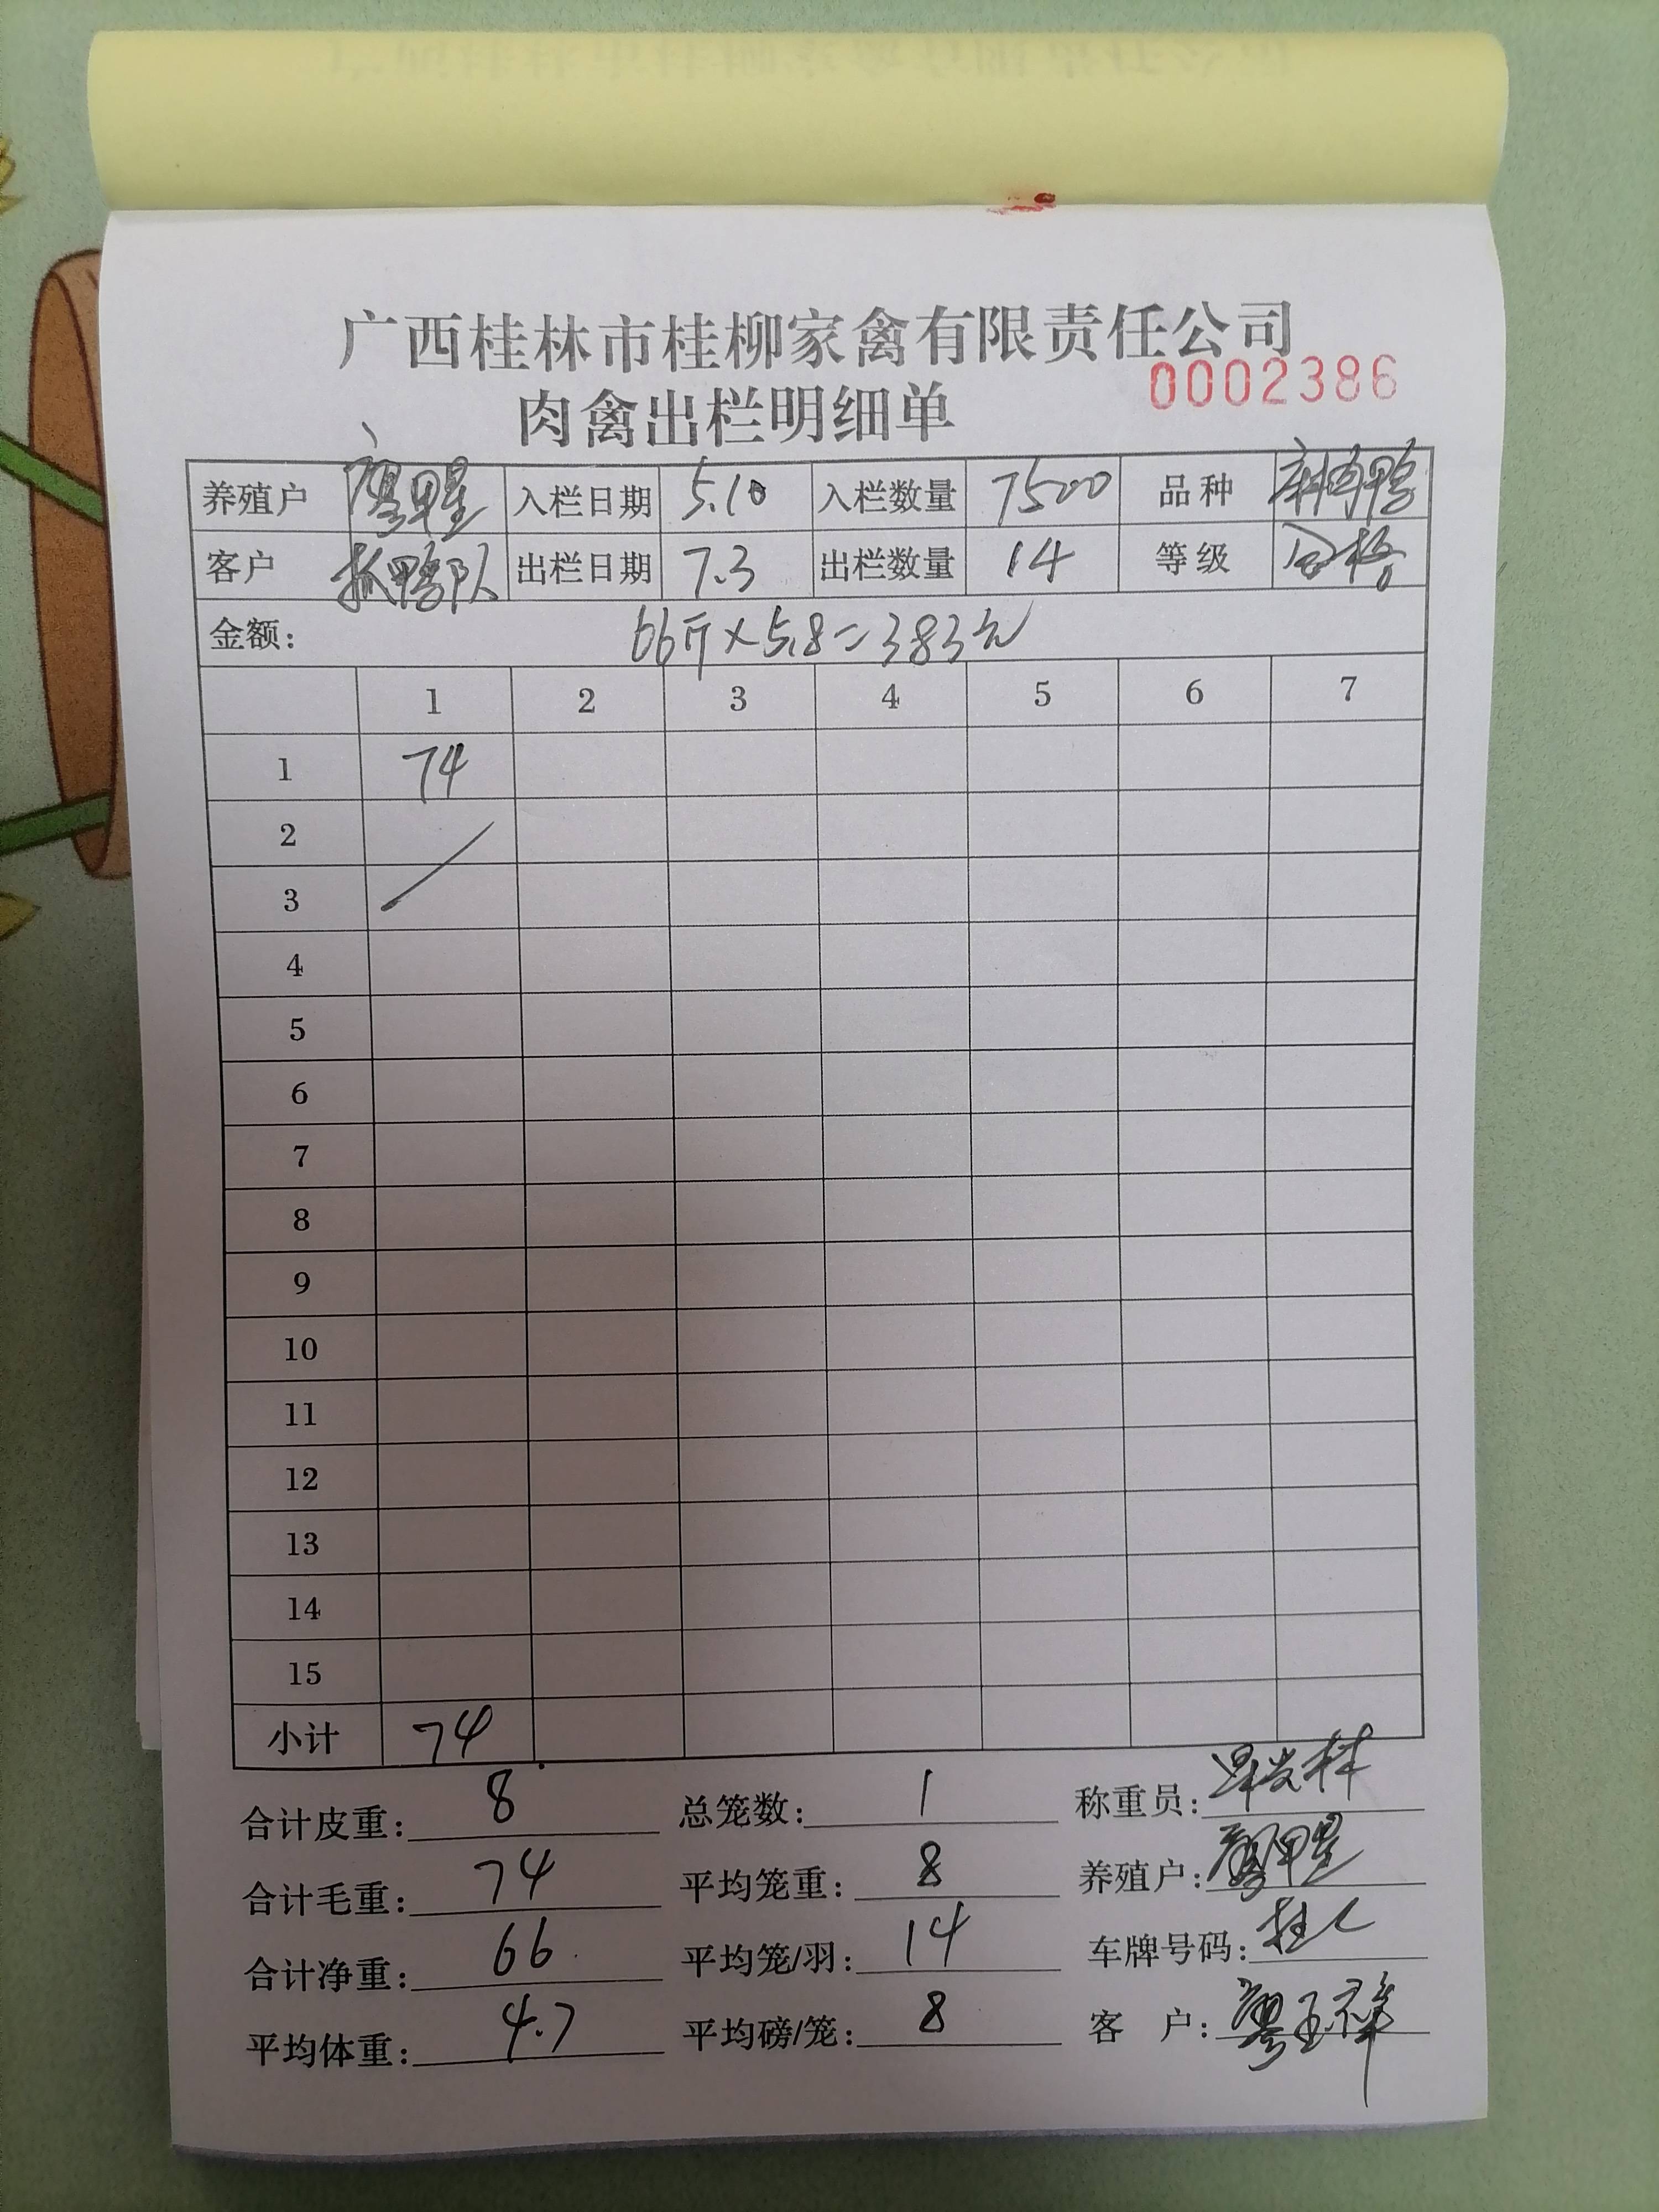 广西桂林市桂柳家禽有限责任公司
0002386
肉禽出栏明细单
养殖户 入栏日期 5.10 入栏数量 7500 品种
客户 抓鸭队 出栏日期 7.3 出栏数量 14 等级 合格
金额: 66斤×5.8=383元
1 2 3 4 5 6 7
1 74
2
3
4
5
6
7
8
9
10
11
12
13
14
15
小计 74
合计皮重: 8 总笼数: 1 称重员:
合计毛重: 74 平均笼重: 8 养殖户:
合计净重: 66 平均笼/羽: 14 车牌号码:
平均体重: 4.7 平均磅/笼: 8 客 户: